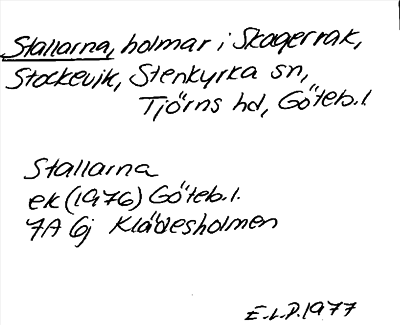 Stallarna, holmar i Skagerrak,
Stockevik, Stenkyrka sn,
Tjörns hd, Göteb.l.
Stallarna
ek (1976) Göteb.l.
7A 6j Klädesholmen
E.L.P. 1977